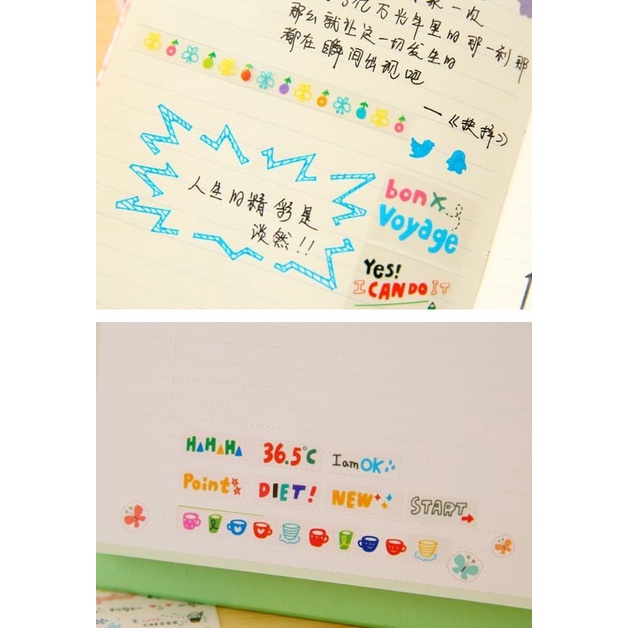 一次
亿万光年里的那一刹那
那么就让这一切发生的
都在瞬间出现吧
一《抉择》
人生的精彩是
淡然!!
bon
voyage
Yes!
I CAN DO IT
HAHAHA
36.5°C
I am OK
Point
DIET!
NEW
START